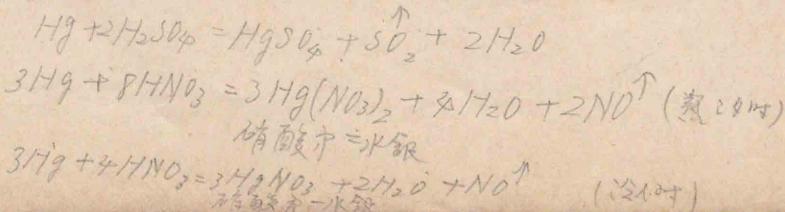 Hg + 2H₂SO₄ = HgSO₄ + SO₂↑ + 2H₂O
3Hg + 8HNO₃ = 3Hg(NO₃)₂ + 4H₂O + 2NO↑ (熱 时)
硝酸 二水銀
3Hg + 4HNO₃ = 3HgNO₃ + 2H₂O + NO↑ (冷 时)
硝酸 一水銀